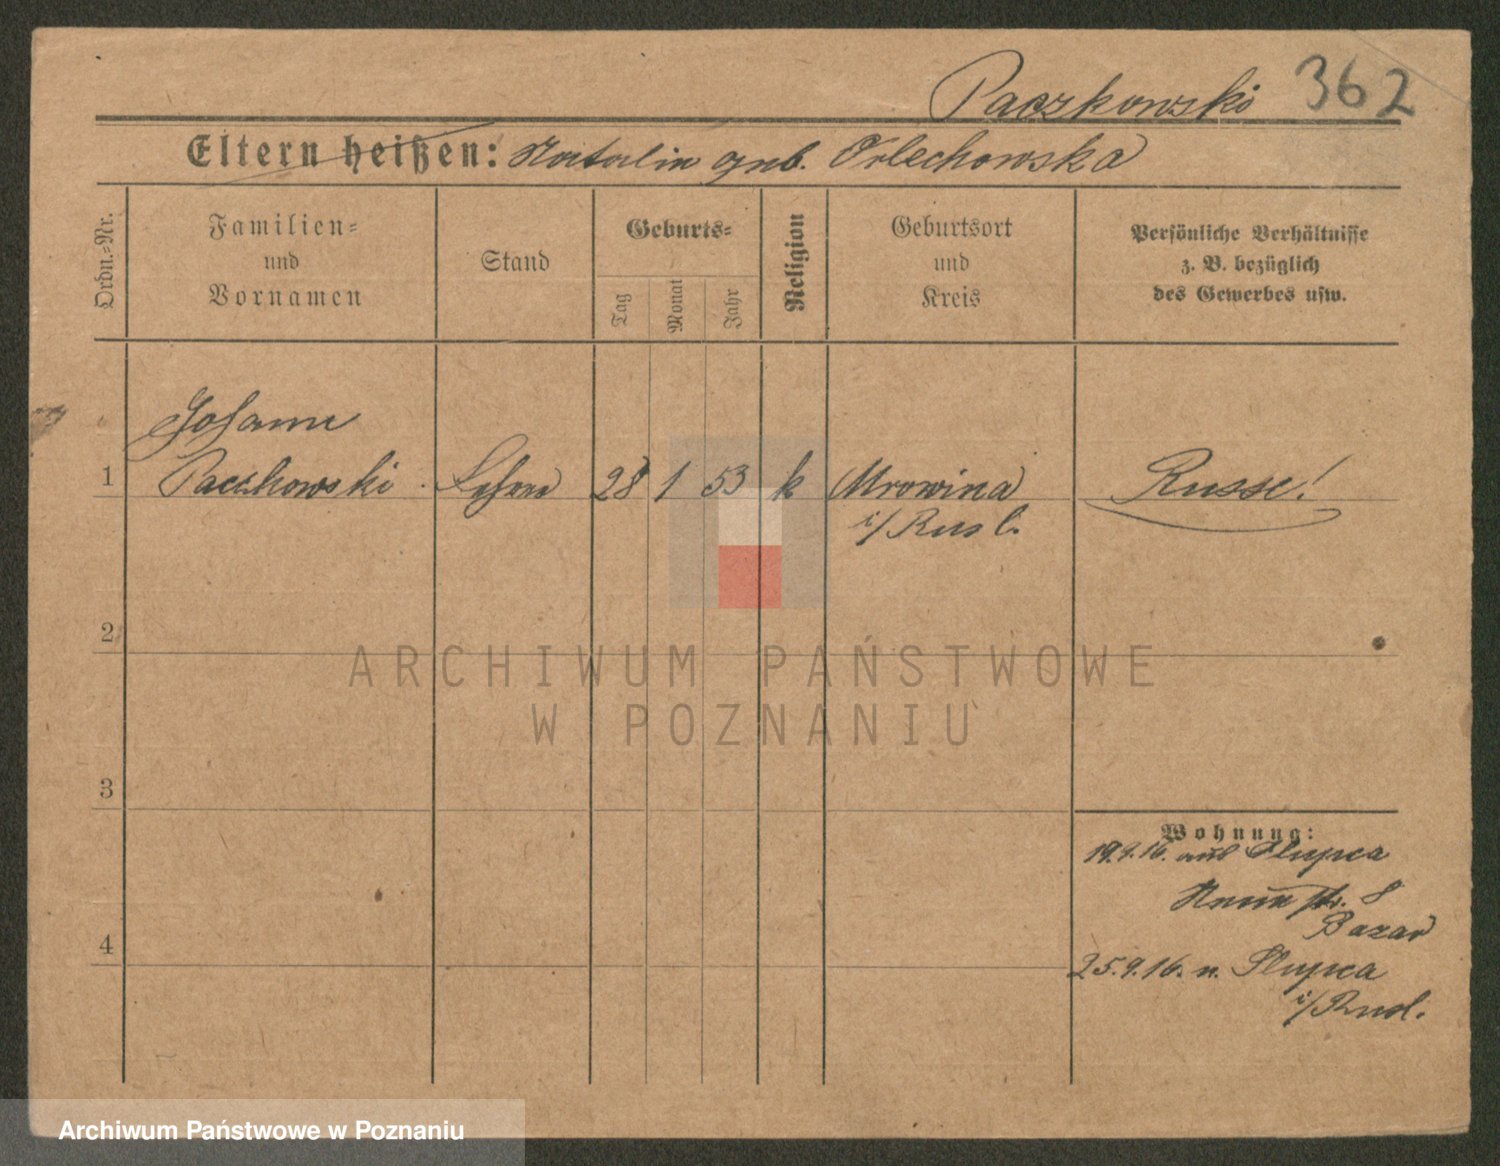 Paczkowski 362
Eltern heißen: Natalie geb. Orlechowska
Ordn.-Nr.
Familien-
und
Vornamen
Stand
Geburts-
Tag
Monat
Jahr
Religion
Geburtsort
und
Kreis
Persönliche Verhältnisse
z. B. bezüglich
des Gewerbes usw.
Johann
1 Paczkowski Lehrer 28 1 53 k Mrowina Russe!
i/Rusl.
2
ARCHIWUM PAŃSTWOWE
W POZNANIU
3
Wohnung:
19.9.16. aus Slupca
str. 8
Bazar
4
25.9.16. n. Slupca
i/Rusl.
Archiwum Państwowe w Poznaniu